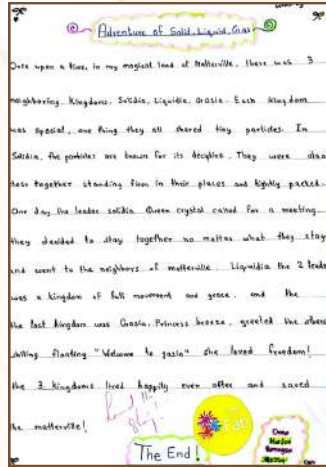 Adventure of Solid, Liquid, Gas
Once upon a time, in my magical land of Matterville, there was 3
neighboring kingdoms. Solidia, Liquidia, Gasia. Each kingdom
was special, one thing they all shared tiny particles. In
Solidia, the particles are known for its They were also
close together standing firm in their places and tightly packed.
One day the leader solidia Queen crystal called for a meeting.
they decided to stay together no matter what they stay
and went to the neighbors of matterville. Liqwidia the 2 leads
was a kingdom of full movement and grace. and the
the last kingdom was Gasia. Princess breeze, greeted the others
whiling floating "Welcome to gasia" she loved freedom!
the 3 kingdoms lived happily ever after and saved
the matterville!
The End!